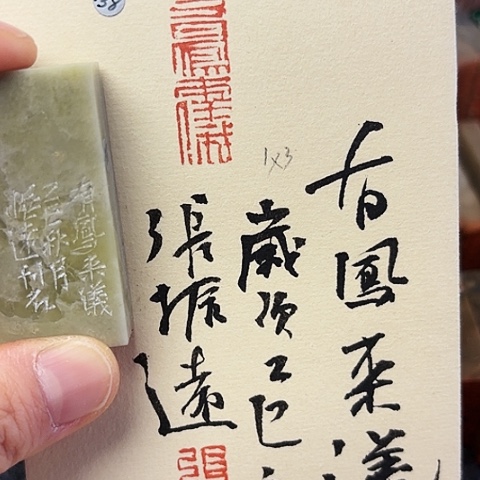 有鳳来儀
歲次乙巳
張振遠
有鳳來儀
張
1x3
有鳳来儀
乙巳秋月
振遠刊石